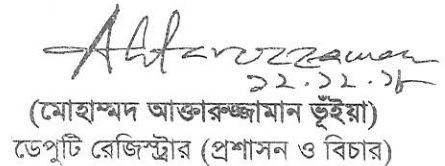 Aktaruzzaman
১২.১২.১৮
(মোহাম্মদ আক্তারুজ্জামান ভূঁইয়া)
ডেপুটি রেজিস্ট্রার (প্রশাসন ও বিচার)